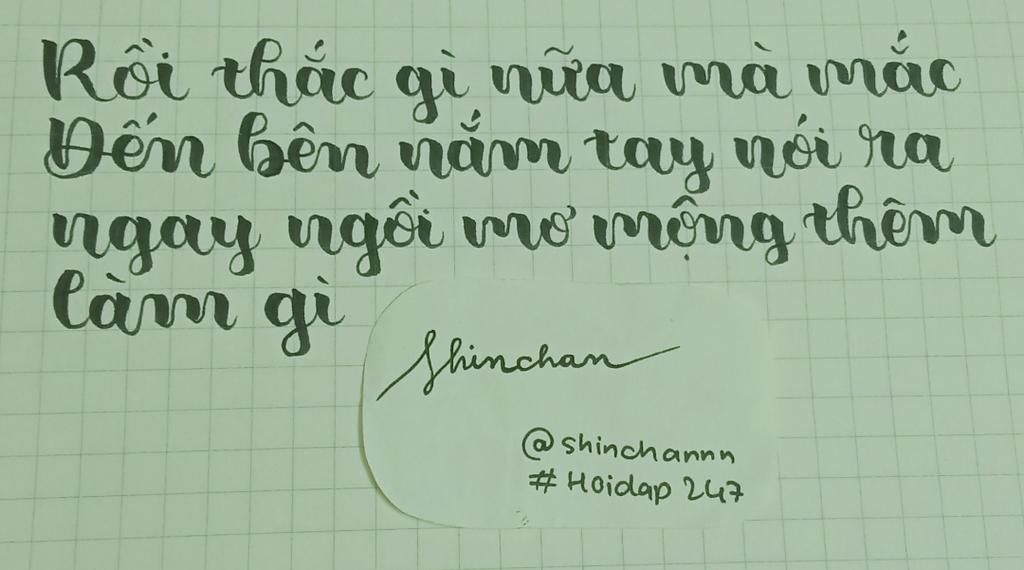 Rồi thắc gì nữa mà mắc
Đến bên nắm tay nói ra
ngay ngồi mơ mộng thêm
làm gì
Shinchan
@shinchannn
# Hoidap 247